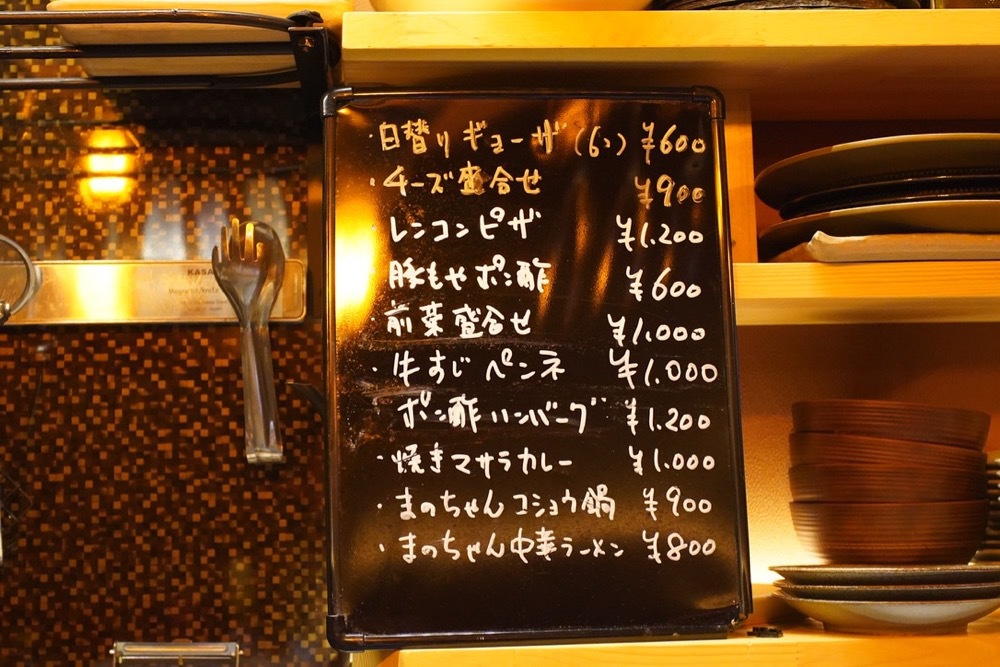 ・日替りギョーザ (6コ) ¥600
・チーズ盛合せ ¥900
レンコンピザ ¥1.200
豚もやポン酢 ¥600
前菜盛合せ ¥1.000
・牛すじペンネ ¥1.000
ポン酢ハンバーグ ¥1.200
・焼きマサラカレー ¥1.000
・まのちゃんコショウ鍋 ¥900
・まのちゃん中華ラーメン ¥800
KASA